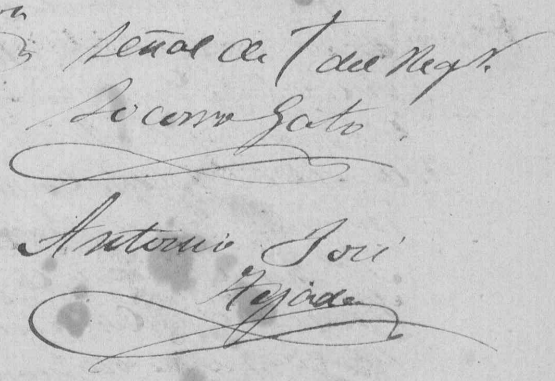 señal de † del Regr.
Socorro Gato.
Antonio José
Tejada